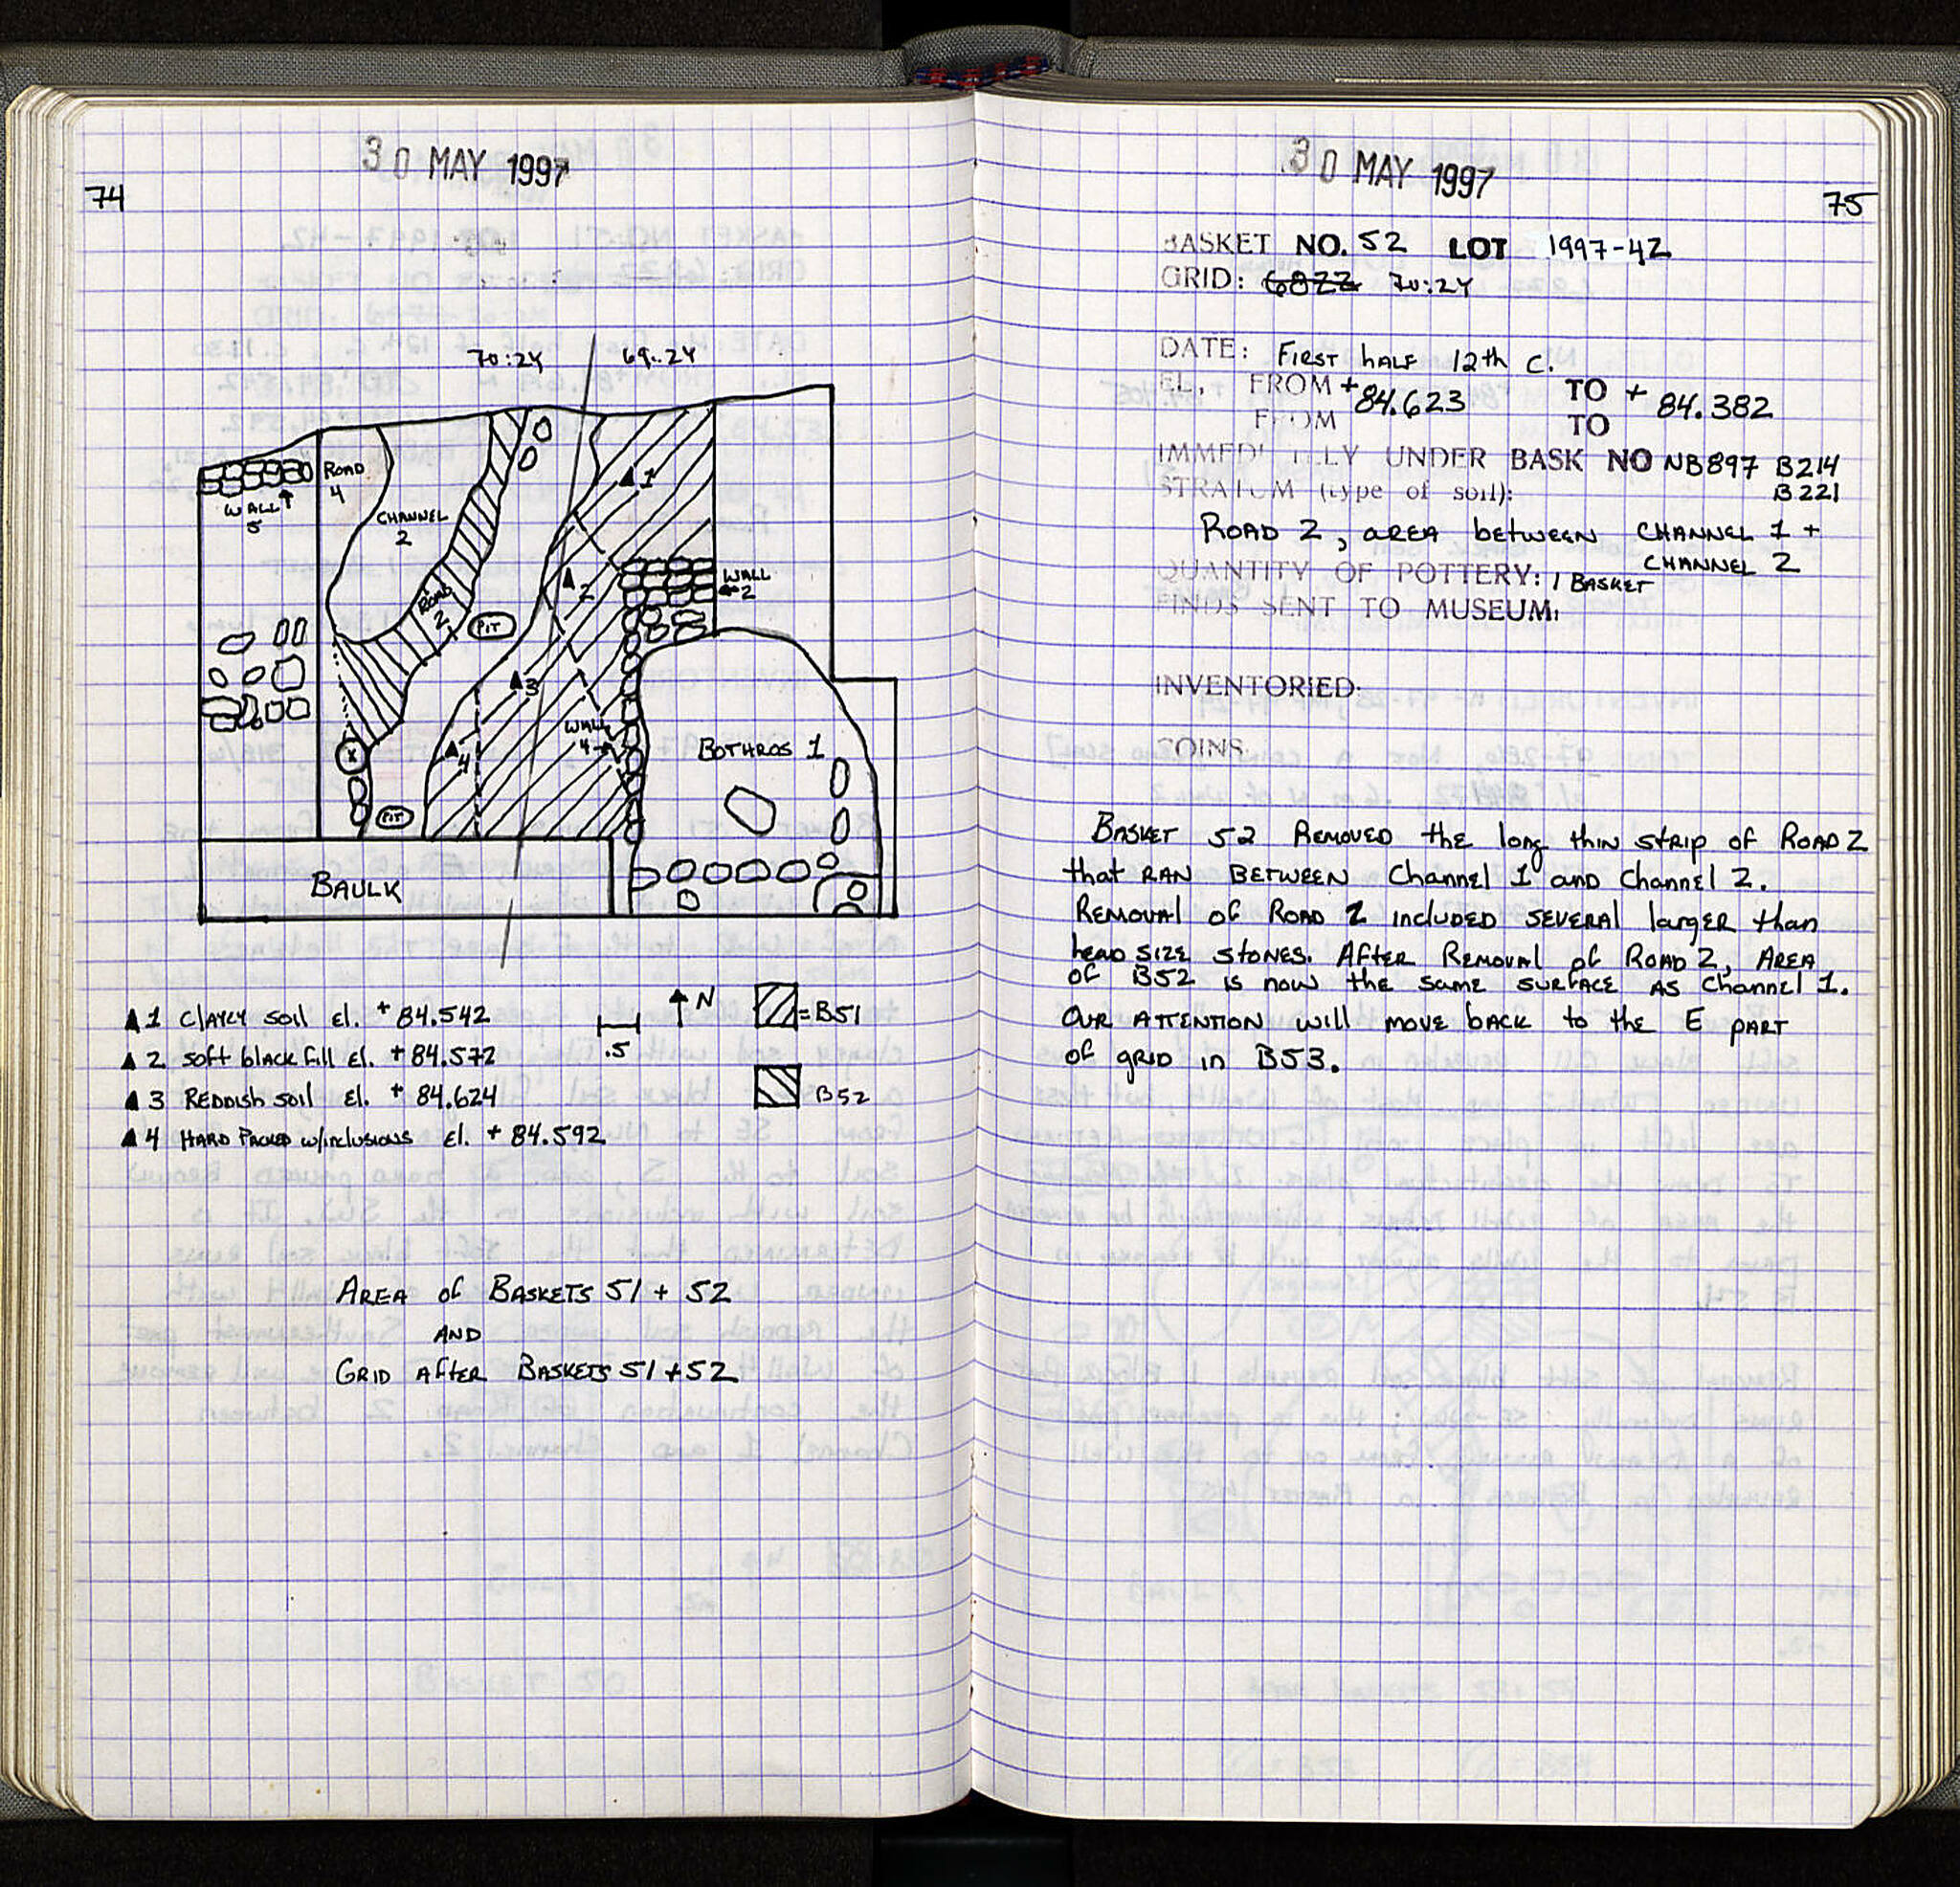 30 MAY 1997
74
70:24 69:24
ROAD
4
WALL
5
CHANNEL
2
ROAD
2
PIT
1
2
3
4
WALL
2
WALL
4
BOTHROS 1
X
PIT
BAULK
▲1 CLAYEY SOIL El. + 84.542
▲2 SOFT BLACK FILL El. + 84.572
▲3 REDDISH SOIL El. + 84.624
▲4 HARD PACKED W/INCLUSIONS El. + 84.592
.5
N
=B51
B52
AREA of BASKETS 51 + 52
AND
GRID AFTER BASKETS 51+52
30 MAY 1997
75
BASKET NO. 52 LOT 1997-42
GRID: 6822 70:24
DATE: FIRST HALF 12th C.
EL, FROM + 84.623 TO + 84.382
FROM TO
UNDER BASK NO NB897 B214
B221
STRATUM (type of soil):
ROAD 2, AREA BETWEEN CHANNEL 1 +
CHANNEL 2
QUANTITY OF POTTERY: 1 BASKET
FINDS SENT TO MUSEUM:
INVENTORIED:
COINS:
BASKET 52 REMOVED the long thin strip of ROAD 2
that RAN BETWEEN Channel 1 and Channel 2.
REMOVAL of ROAD 2 INCLUDED SEVERAL larger than
head SIZE STONES. AFTER REMOVAL of ROAD 2, AREA
of B52 is now the same surface as Channel 1.
OUR ATTENTION will MOVE back to the E PART
of GRID in B53.